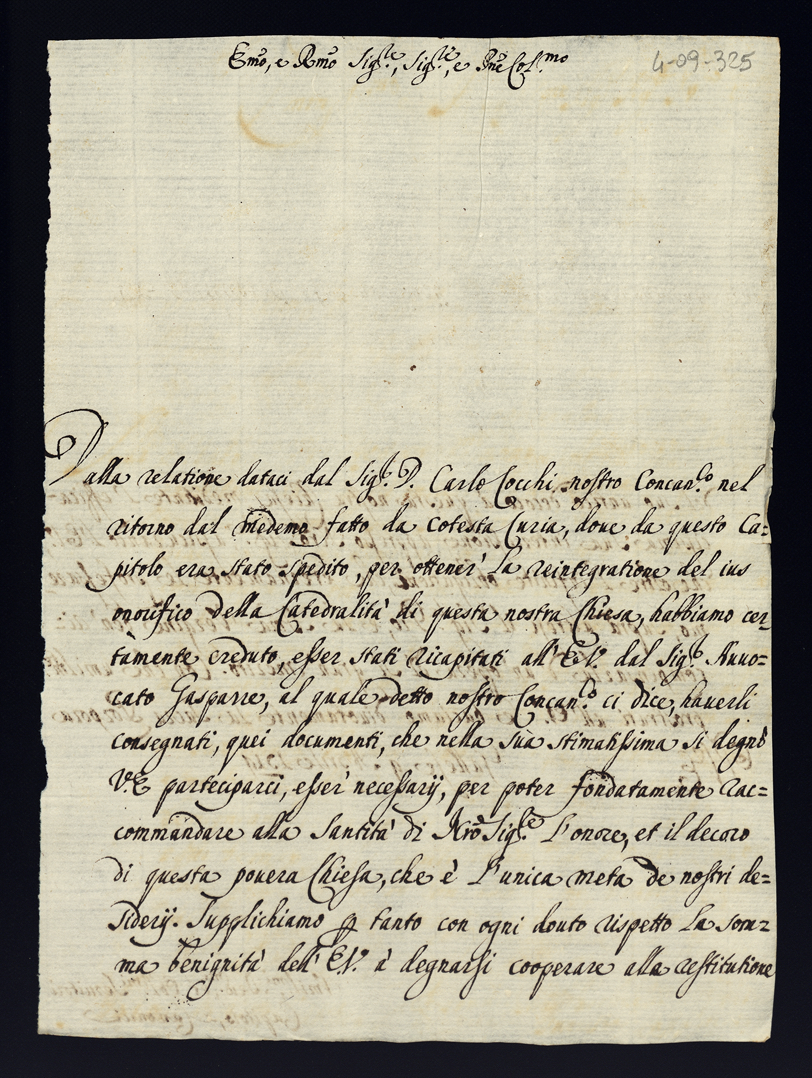 Emo, e Rmo Sig.re, Sig.re, e Pne Col.mo
4-09-325
Dalla relatione dataci dal Sig.r D. Carlo Cocchi nostro Concan.co nel
ritorno dal medemo fatto da cotesta Curia, doue da questo Ca=
pitolo era stato spedito, per ottener' la reintegratione del ius
onorifico della Catedralità di questa nostra Chiesa, habbiamo cer=
tamente creduto, esser stati ricapitati all' E.V. dal Sig.r Auuo=
cato Gasparre, al quale detto nostro Concan.co ci dice, hauerli
consegnati, quei documenti, che nella sua stimatissima si degnò
V.E. parteciparci, esser' necessarij, per poter fondatamente rac=
commandare alla Santità di Nrõ Sig.re l'onore, et il decoro
di questa pouera Chiesa, che è l'unica meta de nostri de=
siderij. Supplichiamo p tanto con ogni douto rispetto la som=
ma benignità dell' E.V. à degnarsi cooperare alla restitutione